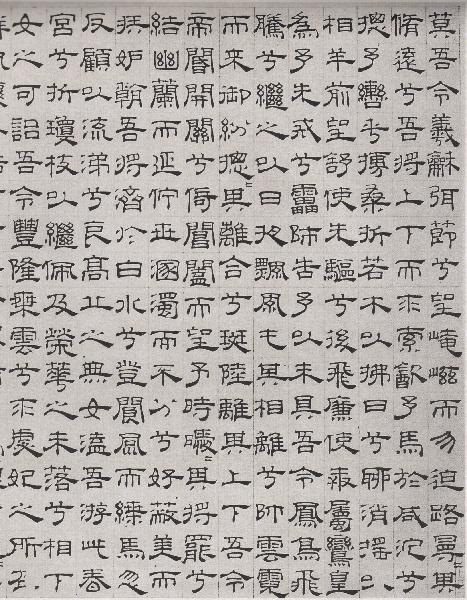 莫吾令羲龢弭節兮望崦嵫而勿迫路曼=其
脩遠兮吾將上下而求索飲予馬於咸池兮
摠予轡乎搏桑折若木以拂日兮聊消搖以
相羊前望舒使先驅兮後飛廉使奔屬鸞皇
為予先戒兮靁師告予以未具吾令鳳鳥飛
騰兮繼之以日夜飄風屯其相離兮帥雲霓
而來御紛摠=其離合兮斑陸離其上下吾令
帝閽開關兮倚閶闔而望予時曖=其將罷兮
結幽蘭而延佇世溷濁而不分兮好蔽美而
嫉妒朝吾將濟於白水兮登閬風而緤馬忽
反顧以流涕兮哀高丘之無女溘吾游此春
宮兮折瓊枝以繼佩及榮華之未落兮相下
女之可詒吾令豐隆乘雲兮求虙妃之所在